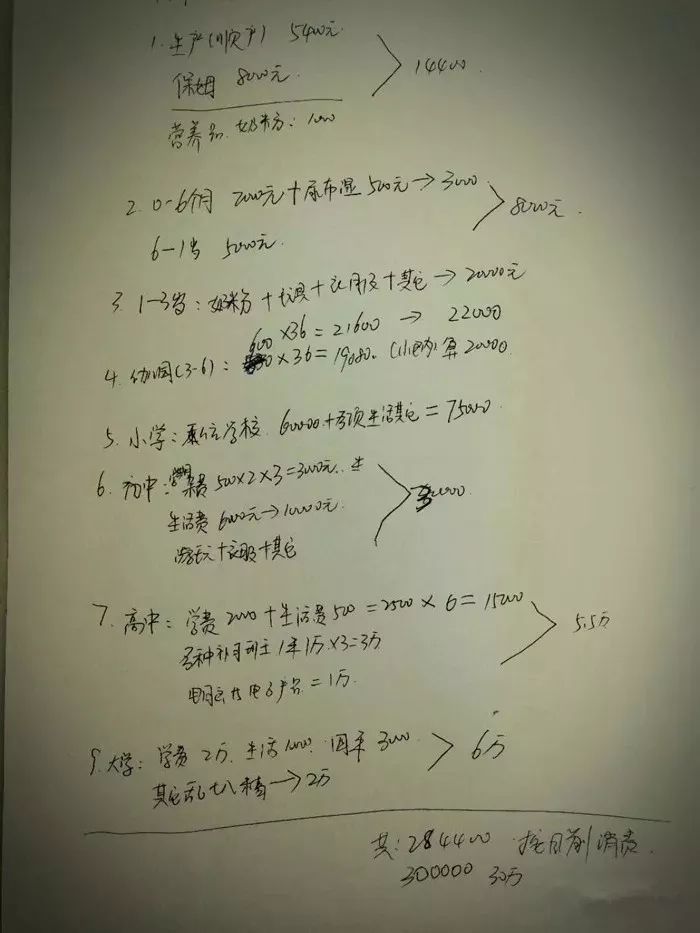 1. 生产(顺产) 5400元
保姆 8000元.
营养品.奶粉: 1000
14400.
2. 0-6个月 2000元+尿布湿 500元→3000
6-1岁 5000元.
8000元.
3. 1-3岁: 奶粉+玩具+衣服+其它→20000元
600×36=21600 → 22000
4. 幼园(3-6): ×36=19080. 算20000.
5. 小学: 学校. 60000+各项生活其它=75000.
6. 初中: 500×2×3=3000元.
生活费 6000元→10000元.
+衣服+其它
7. 高中: 学费 2000+生活费500=2500×6=15000
各种补习班 1年1万×3=3万
电子产品=1万.
5.5万
9. 大学: 学费 2万. 生活 1000. 3000.
其它乱七八糟→2万
6万
共: 284400 按目前消费.
300000 30万